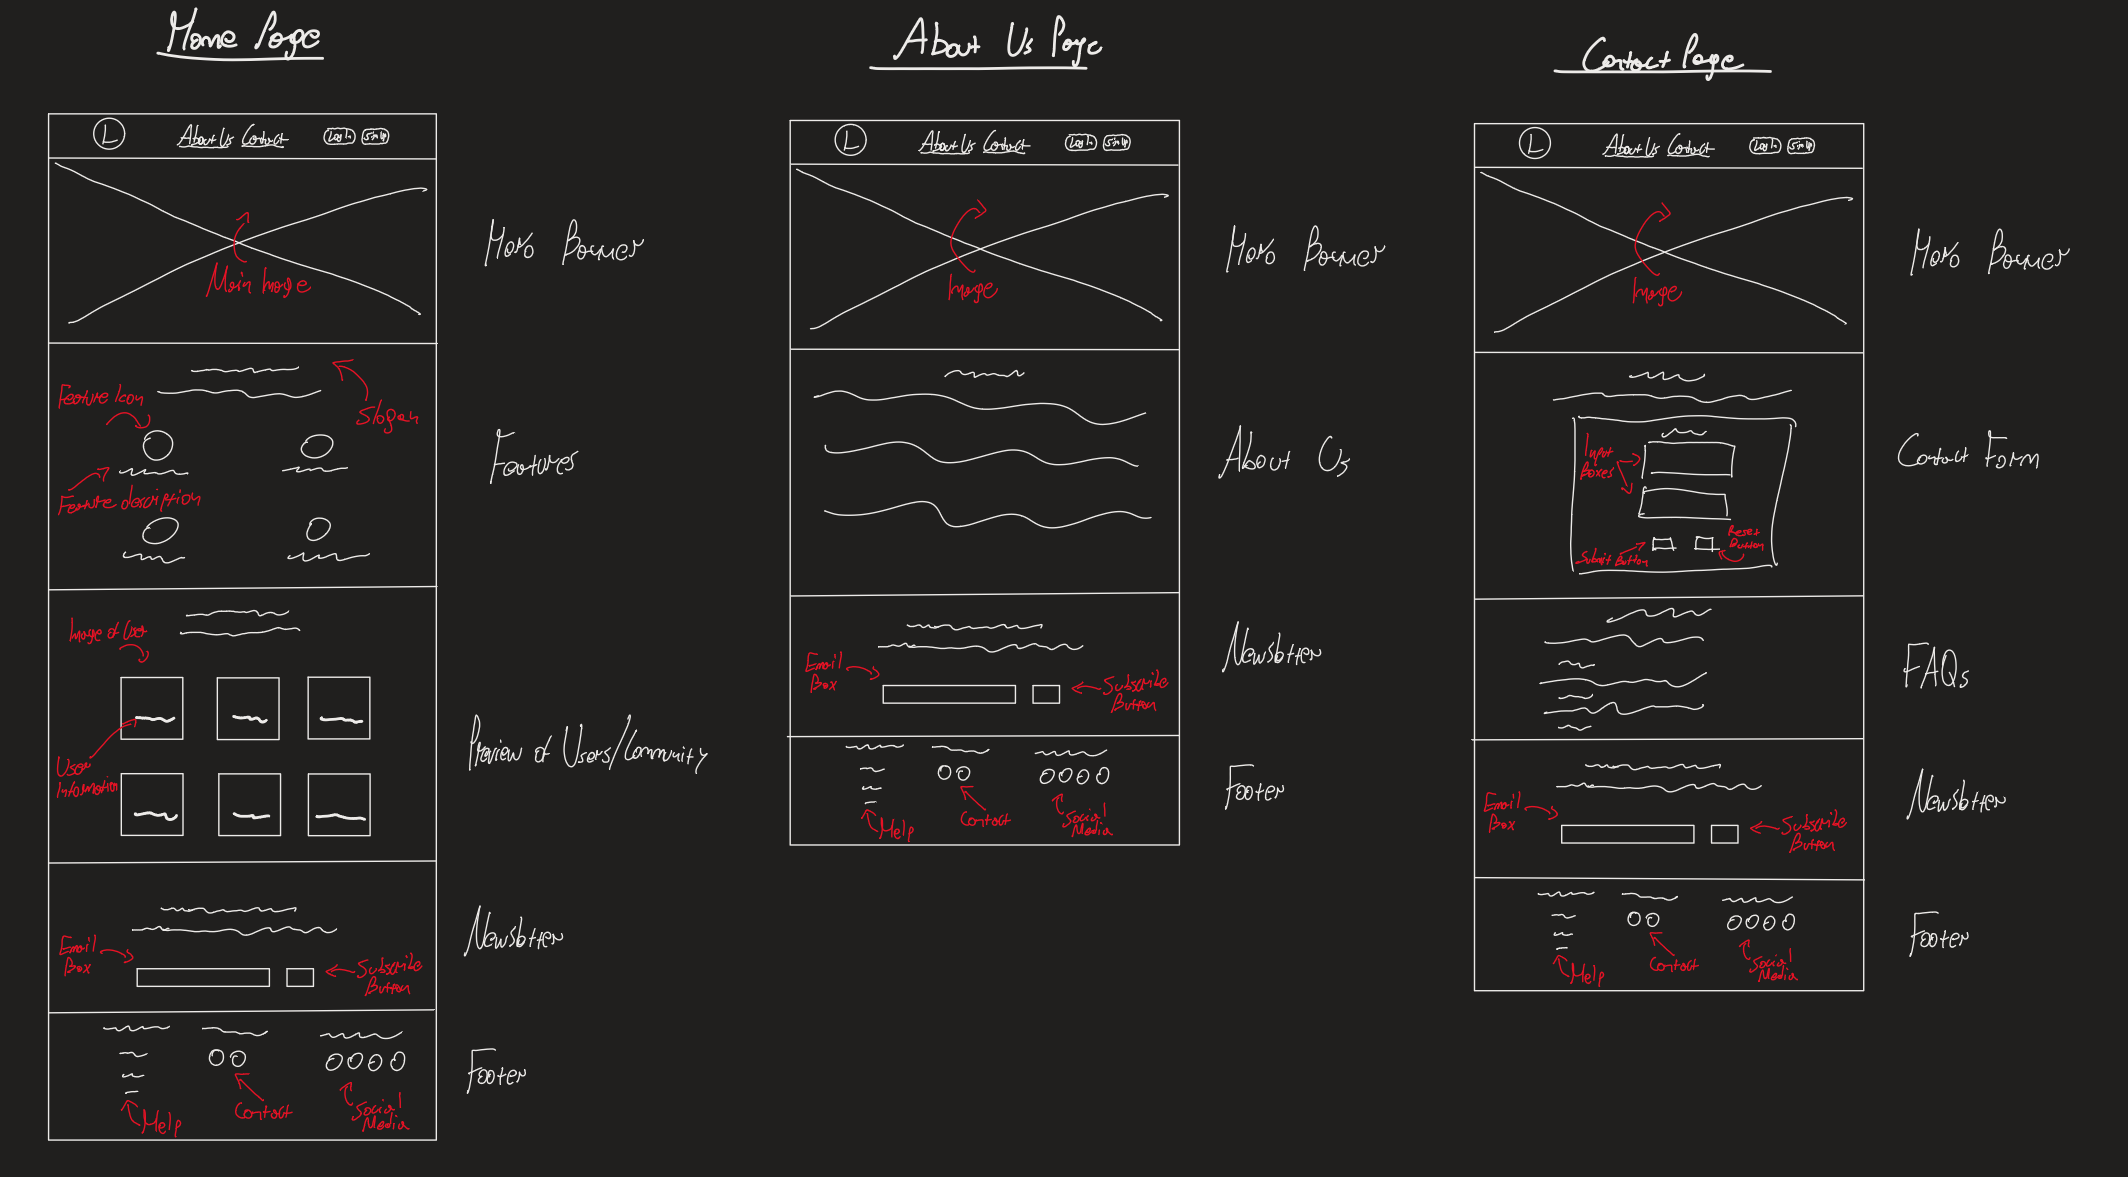 Home Page
L About Us Contact Log In Sign Up
Main Image
Hero Banner
Slogan
Feature Icon
Feature description
Features
Image of User
User
Information
Preview of Users/Community
Email
Box
Subscribe
Button
Newsletter
Help
Contact
Social
Media
Footer
About Us Page
L About Us Contact Log In Sign Up
Image
Hero Banner
About Us
Email
Box
Subscribe
Button
Newsletter
Help
Contact
Social
Media
Footer
Contact Page
L About Us Contact Log In Sign Up
Image
Hero Banner
Input
Boxes
Submit Button
Reset
Button
Contact Form
FAQs
Email
Box
Subscribe
Button
Newsletter
Help
Contact
Social
Media
Footer